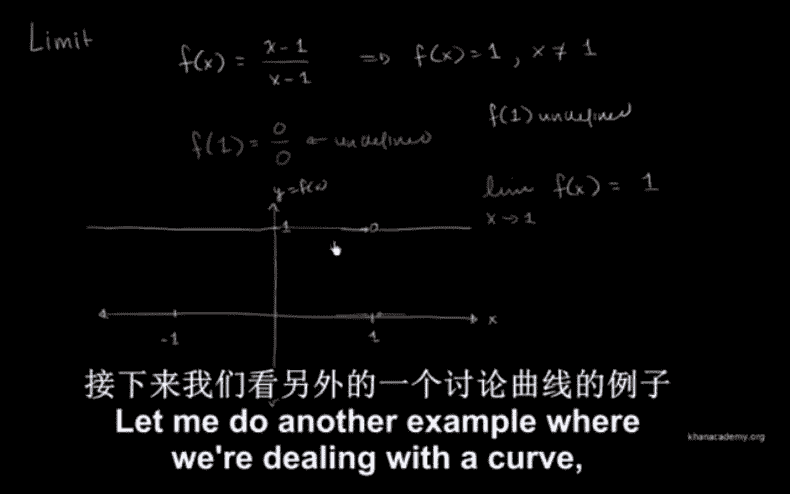 Limit
f(x) = x-1 / x-1 => f(x) = 1, x ≠ 1
f(1) undefined
f(1) = 0/0 ← undefined
y=f(x)
lim f(x) = 1
x→1
1
x
-1
1
接下来我们看另外的一个讨论曲线的例子
Let me do another example where
we're dealing with a curve,
khanacademy.org